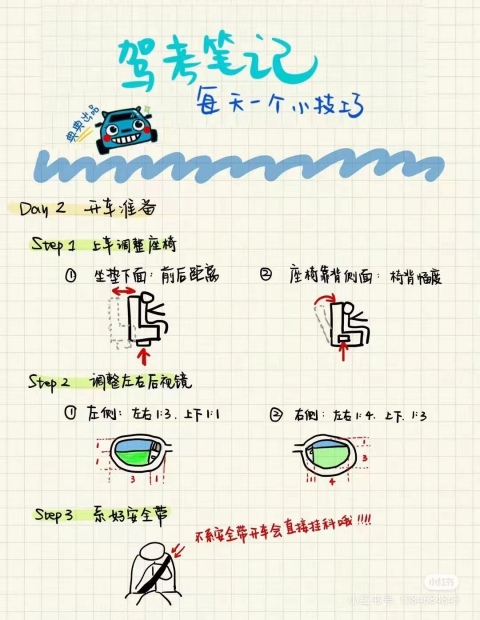 驾考笔记
每天一个小技巧
典典出品
Day 2 开车准备
Step 1 上车调整座椅
① 坐垫下面：前后距离
② 座椅靠背侧面：椅背幅度
Step 2 调整左右后视镜
① 左侧：左右1:3、上下1:1
② 右侧：左右1:4、上下1:3
1
1
3
1
1
4
1
3
Step 3 系好安全带
不系安全带开车会直接挂科哦!!!!
小红书